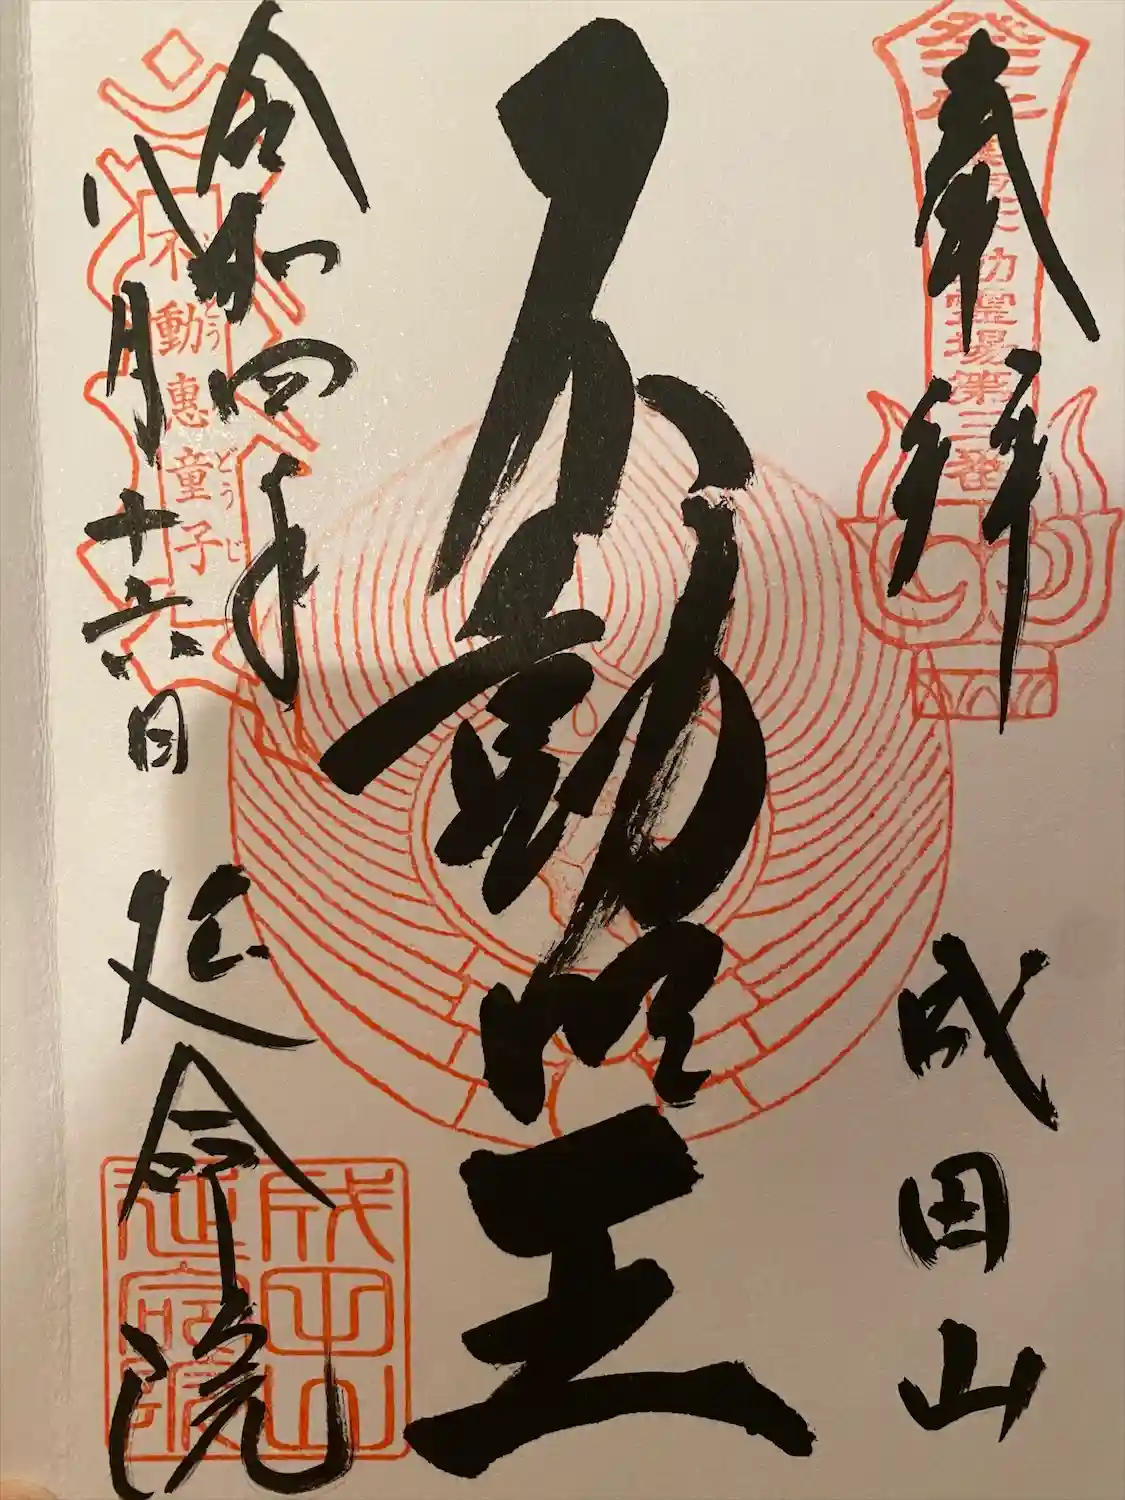 奉拝
成田山
不動明王
令和四年
八月十六日
延命院
不動恵童子
どう
どうじ
霊場第三番
成田山
延命院